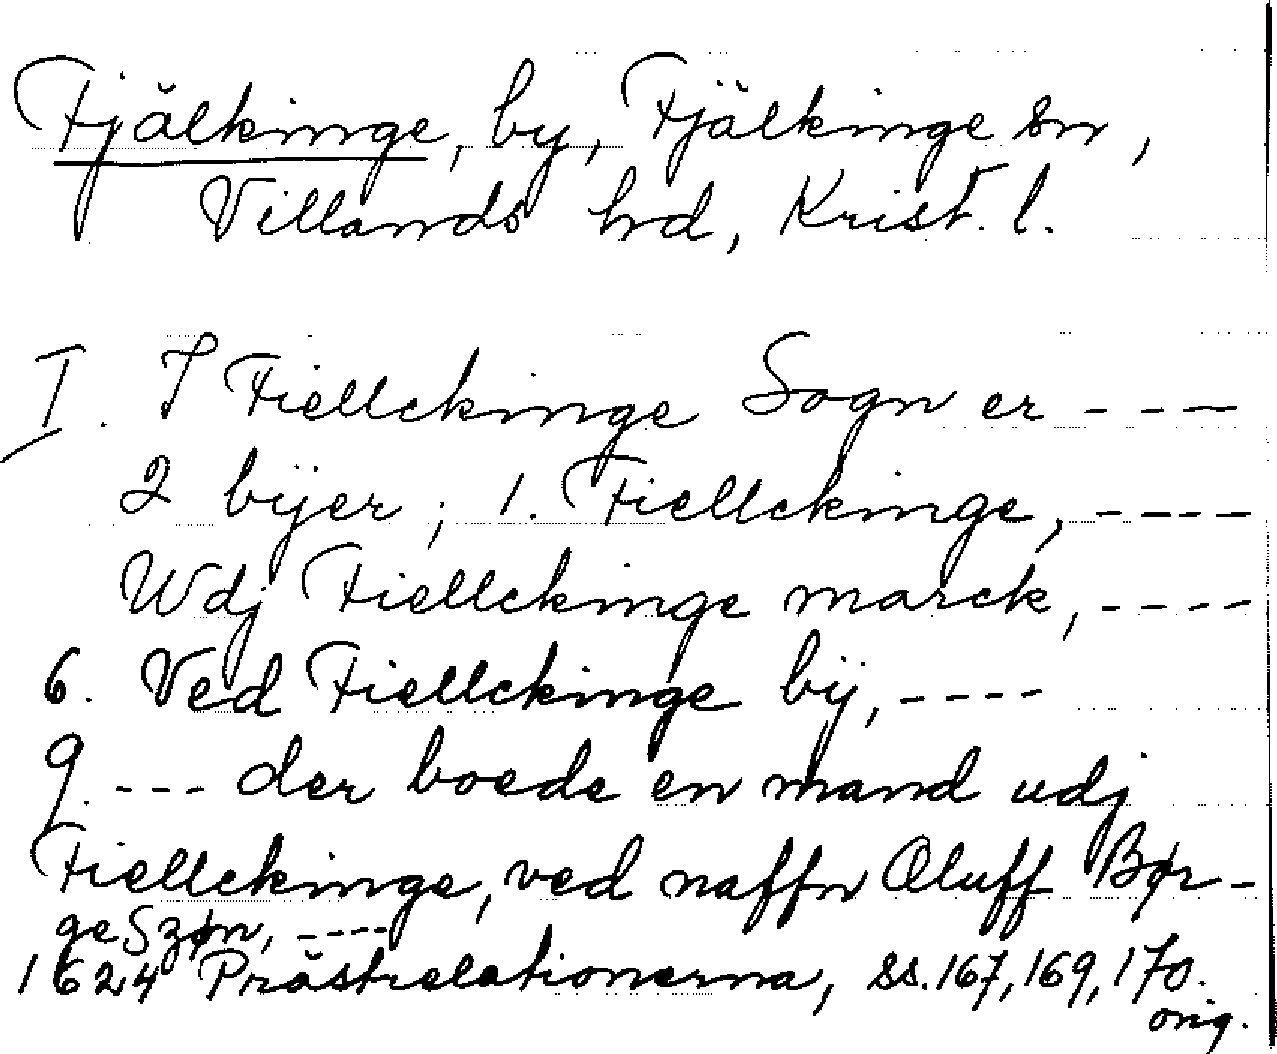 Fjälkinge, by, Fjälkinge sn,
Villands hrd, Krist. l.
I. I Fiellckinge Sogn er ----
2 bÿer; 1. Fiellckinge, ----
Wdj Fiellckinge marck, ----
6. Ved Fiellckinge bÿ, ----
9. --- der boede en mand udj
Fiellckinge, ved naffn Oluff Bør-
geSzøn, ----
1624 Prästrelationerna, ss. 167, 169, 170.
orig.